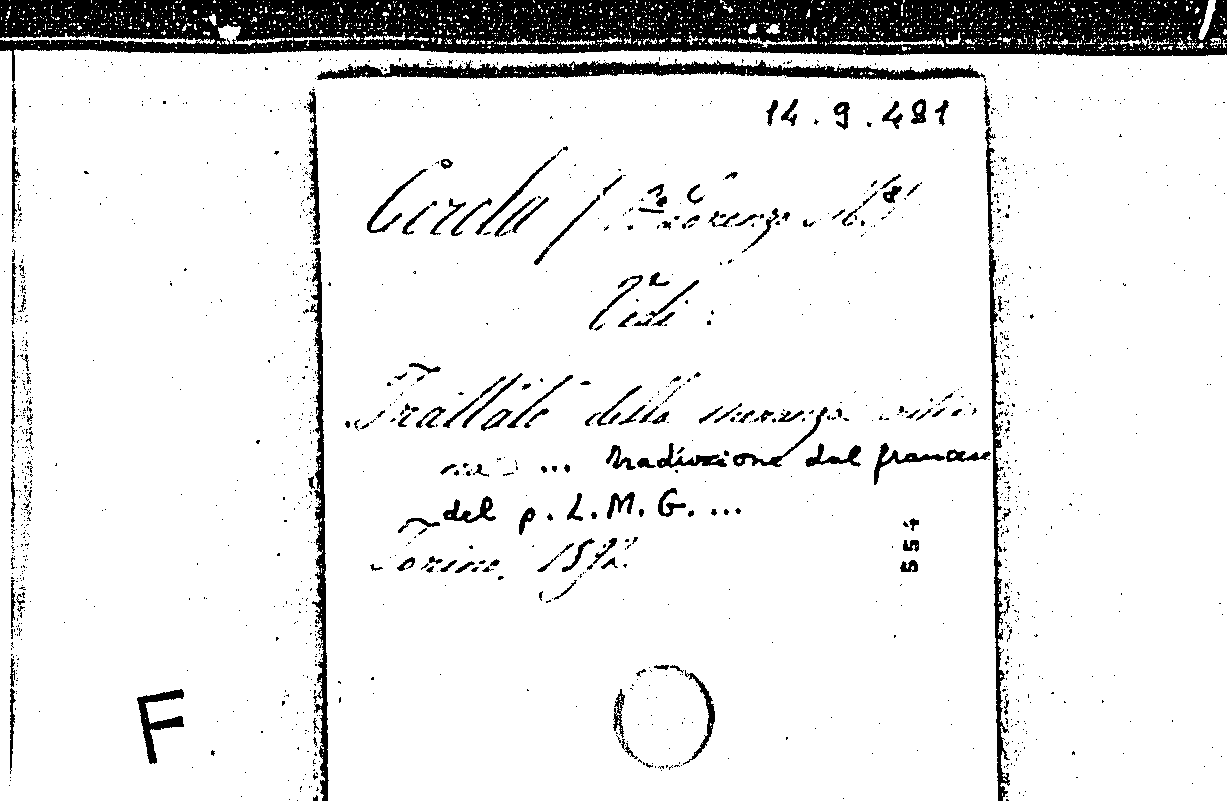 14.9.481
Lorenzo
Vedi:
Trattato della speranza
... traduzione dal francese
del p. L. M. G. ...
Torino, 1892
554
F